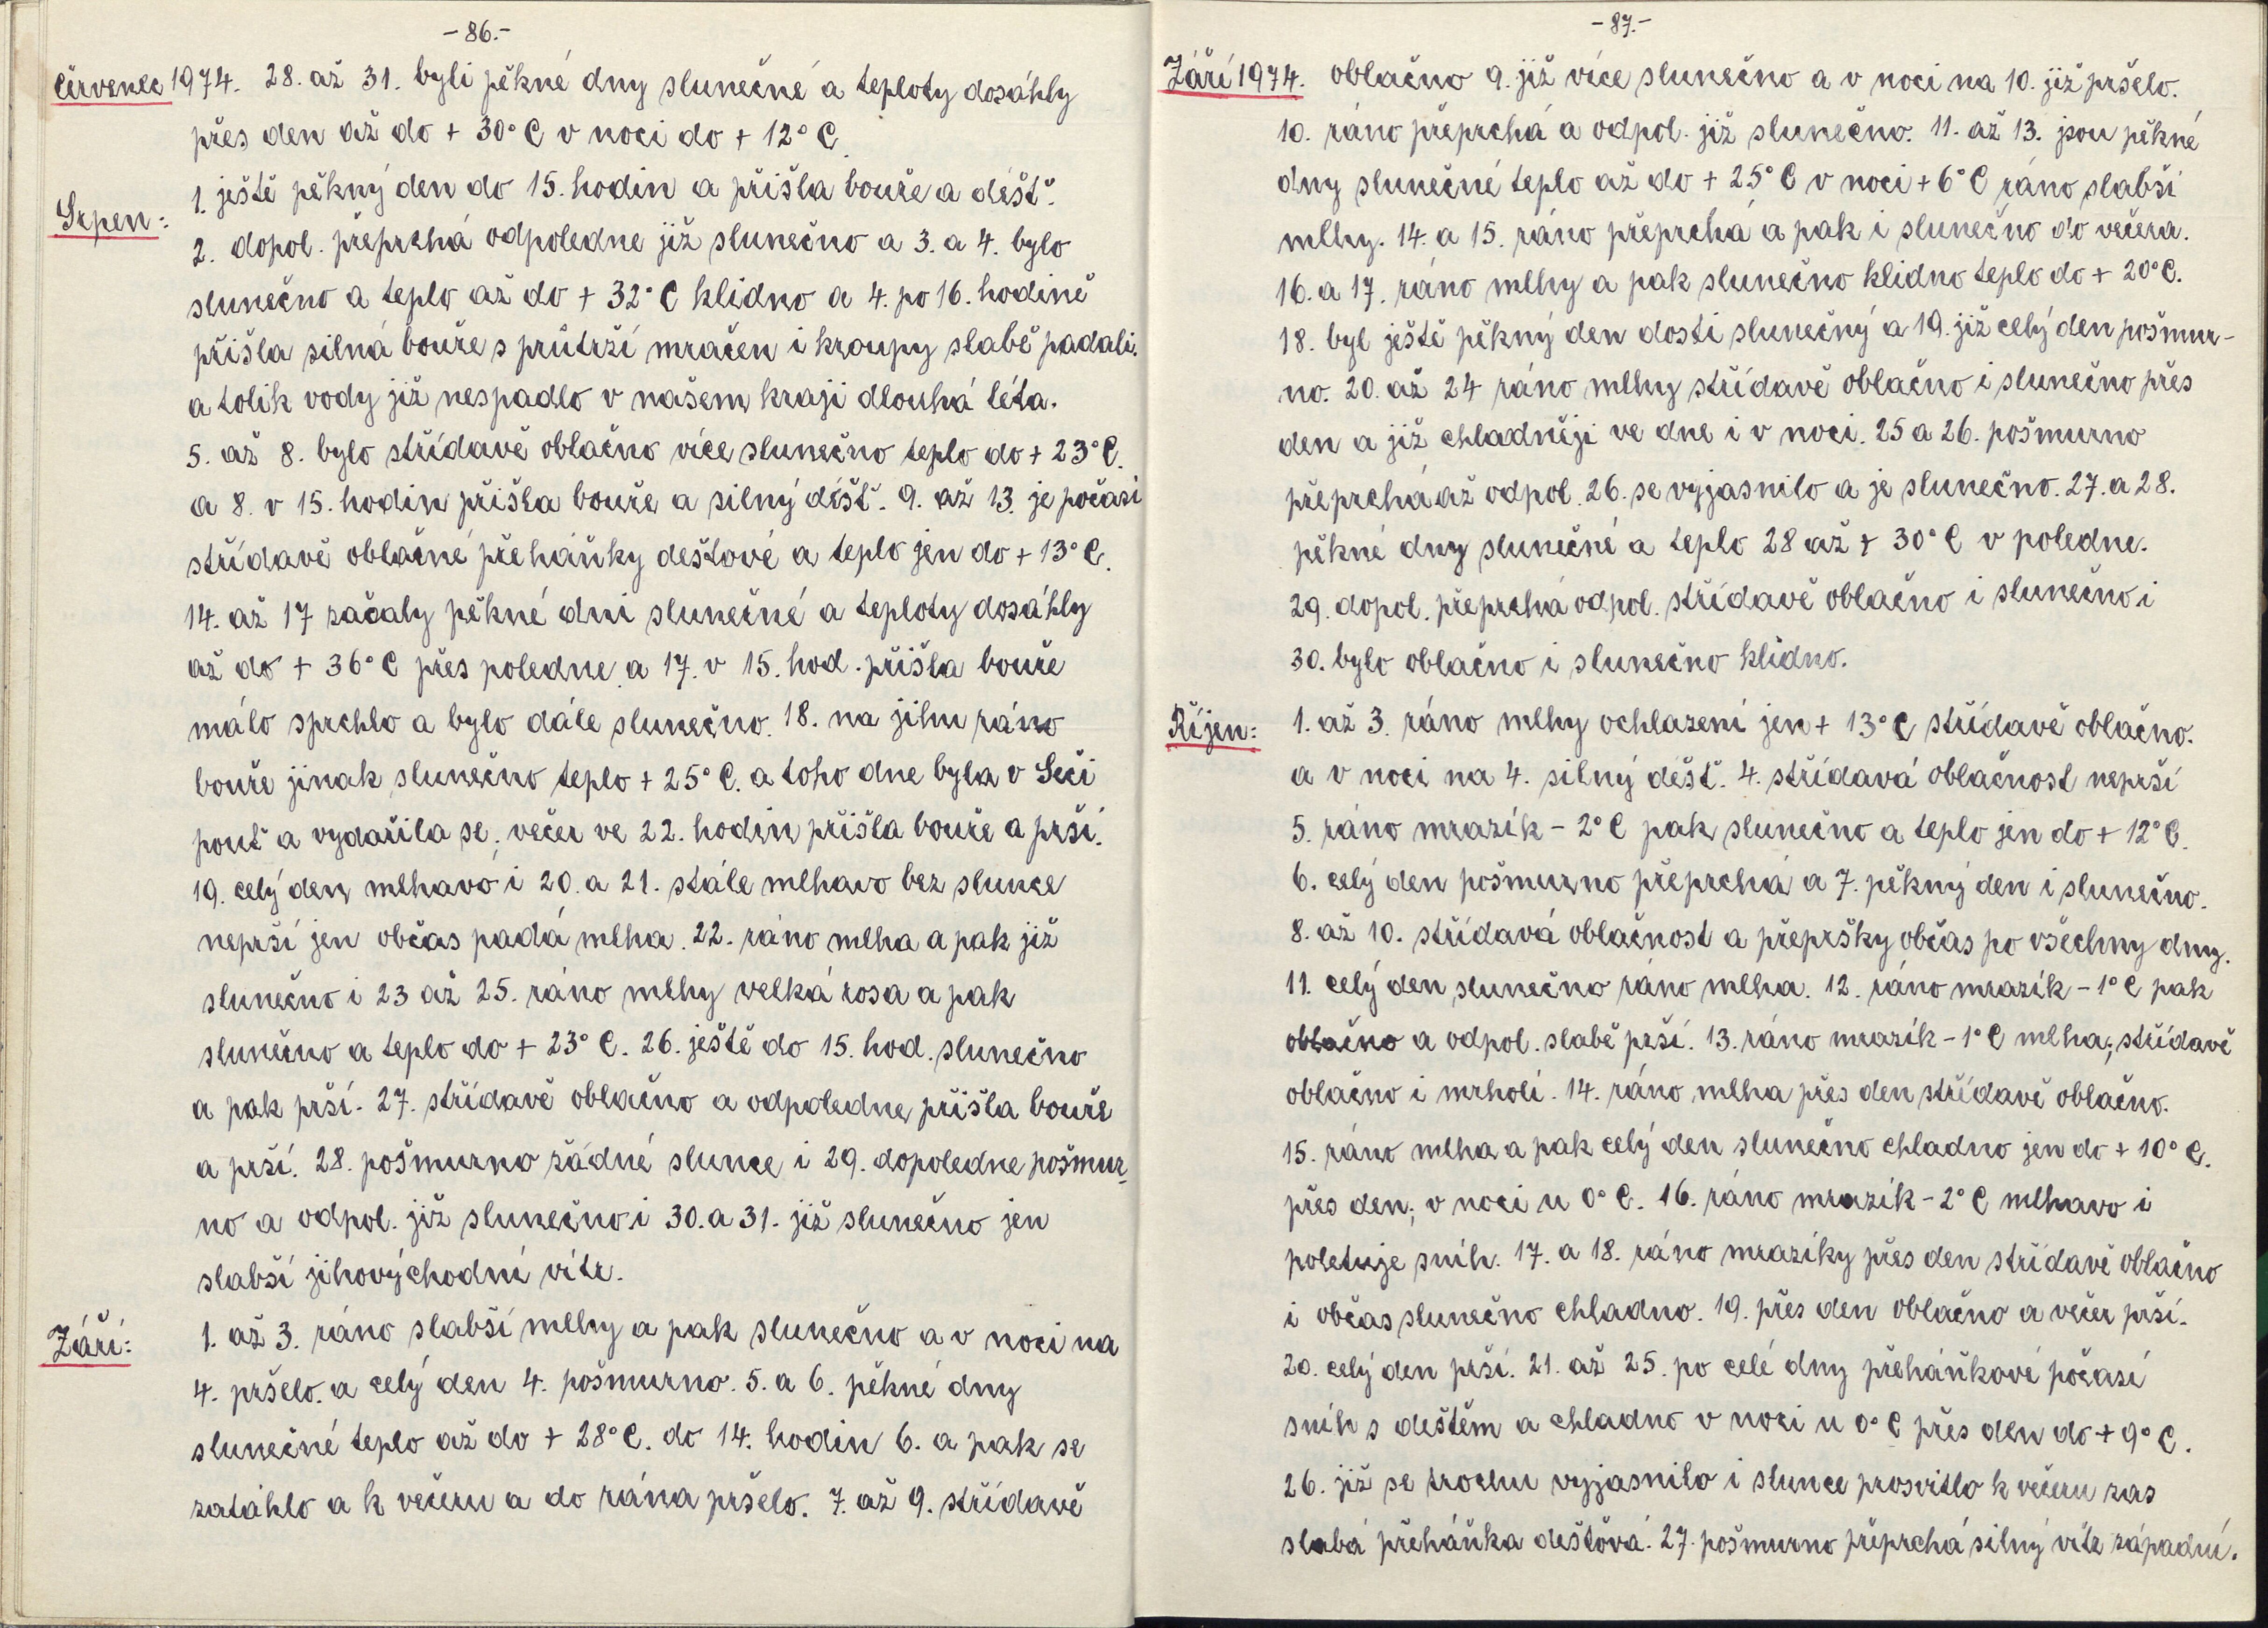 -86.-
Červenec 1974. 28. až 31. byli pěkné dny slunečné a teploty dosáhly
přes den až do + 30° C v noci do + 12° C.
Srpen: 1. ještě pěkný den do 15. hodin a přišla bouře a déšť.
2. dopol. přeprchá odpoledne již slunečno a 3. a 4. bylo
slunečno a teplo až do + 32° C klidno a 4. po 16. hodině
přišla silná bouře s průtrží mračen i kroupy slabě padali.
a tolik vody již nespadlo v našem kraji dlouhá léta.
5. až 8. bylo střídavě oblačno více slunečno teplo do + 23° C.
a 8. v 15. hodin přišla bouře a silný déšť. 9. až 13. je počasí
střídavě oblačné přeháňky dešťové a teplo jen do + 13° C.
14. až 17 začaly pěkné dni slunečné a teploty dosáhly
až do + 36° C přes poledne a 17. v 15. hod. přišla bouře
málo sprchlo a bylo dále slunečno. 18. na jihu ráno
bouře jinak slunečno teplo + 25° C. a toho dne byla v Seči
pouť a vydařila se, večer ve 22. hodin přišla bouře a prší.
19. celý den mlhavo i 20. a 21. stále mlhavo bez slunce
neprší jen občas padá mlha. 22. ráno mlha a pak již
slunečno i 23 až 25. ráno mlhy velká rosa a pak
slunečno a teplo do + 23° C. 26. ještě do 15. hod. slunečno
a pak prší. 27. střídavě oblačno a odpoledne přišla bouře
a prší. 28. pošmurno žádné slunce i 29. dopoledne pošmur-
no a odpol. již slunečno i 30. a 31. již slunečno jen
slabší jihovýchodní vítr.
Září: 1. až 3. ráno slabší mlhy a pak slunečno a v noci na
4. pršelo. a celý den 4. pošmurno. 5. a 6. pěkné dny
slunečné teplo až do + 28° C. do 14. hodin 6. a pak se
zatáhlo a k večeru a do rána pršelo. 7. až 9. střídavě
-87.-
Září 1974. oblačno 9. již více slunečno a v noci na 10. již pršelo.
10. ráno přeprchá a odpol. již slunečno. 11. až 13. jsou pěkné
dny slunečné teplo až do + 25° C v noci + 6° C ráno slabší
mlhy. 14. a 15. ráno přeprchá a pak i slunečno do večera.
16. a 17. ráno mlhy a pak slunečno klidno teplo do + 20° C.
18. byl ještě pěkný den dosti slunečný a 19. již celý den pošmur-
no. 20. až 24 ráno mlhy střídavě oblačno i slunečno přes
den a již chladněji ve dne i v noci. 25 a 26. pošmurno
přeprchá až odpol. 26. se vyjasnilo a je slunečno. 27. a 28.
pěkné dny slunečné a teplo 28 až + 30° C v poledne.
29. dopol. přeprchá odpol. střídavě oblačno i slunečno i
30. bylo oblačno i slunečno klidno.
Říjen: 1. až 3. ráno mlhy ochlazení jen + 13° C střídavě oblačno.
a v noci na 4. silný déšť. 4. střídavá oblačnost neprší
5. ráno mrazík - 2° C pak slunečno a teplo jen do + 12° C.
6. celý den pošmurno přeprchá a 7. pěkný den i slunečno.
8. až 10. střídavá oblačnost a přepršky občas po všechny dny.
11. celý den slunečno ráno mlha. 12. ráno mrazík - 1° C pak
oblačno a odpol. slabě prší. 13. ráno mrazík - 1° C mlha, střídavě
oblačno i mrholí. 14. ráno mlha přes den střídavě oblačno.
15. ráno mlha a pak celý den slunečno chladno jen do + 10° C.
přes den; v noci u 0° C. 16. ráno mrazík - 2° C mlhavo i
poletuje sníh. 17. a 18. ráno mrazíky přes den střídavě oblačno
i občas slunečno chladno. 19. přes den oblačno a večer prší.
20. celý den prší. 21. až 25. po celé dny přeháňkové počasí
sníh s deštěm a chladno v noci u 0° C přes den do + 9° C.
26. již se trochu vyjasnilo i slunce prosvitlo k večeru zas
slabá přeháňka dešťová. 27. pošmurno přeprchá silný vítr západní.